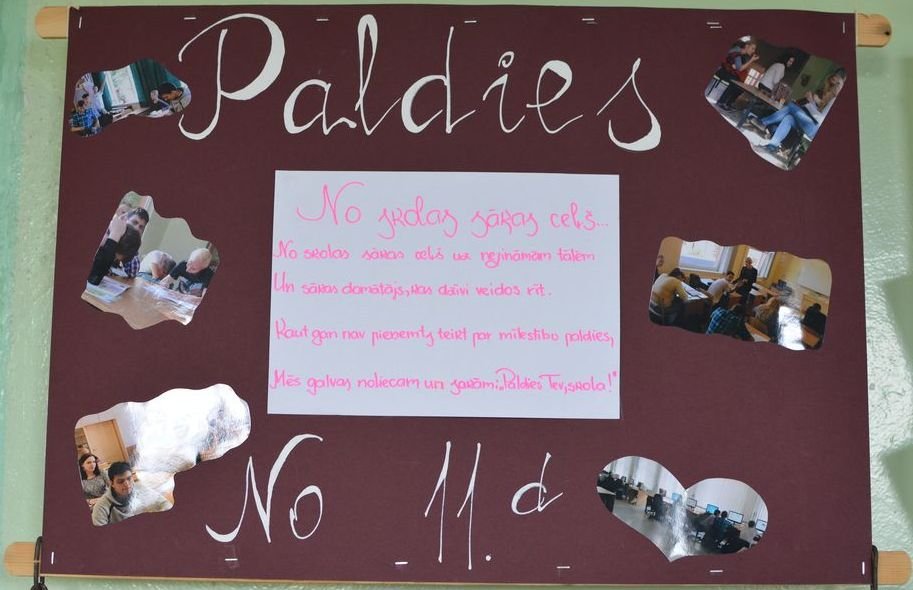 Paldies
No skolas sākas ceļš...
No skolas sākas ceļš uz nezināmām tālēm
Un sākas domātājs, kas dzīvi veidos rīt.
Kaut gan nav pieņemts teikt par mīlestību paldies,
Mēs galvas noliecam un sakām: „Paldies Tev, skola!"
No 11.d